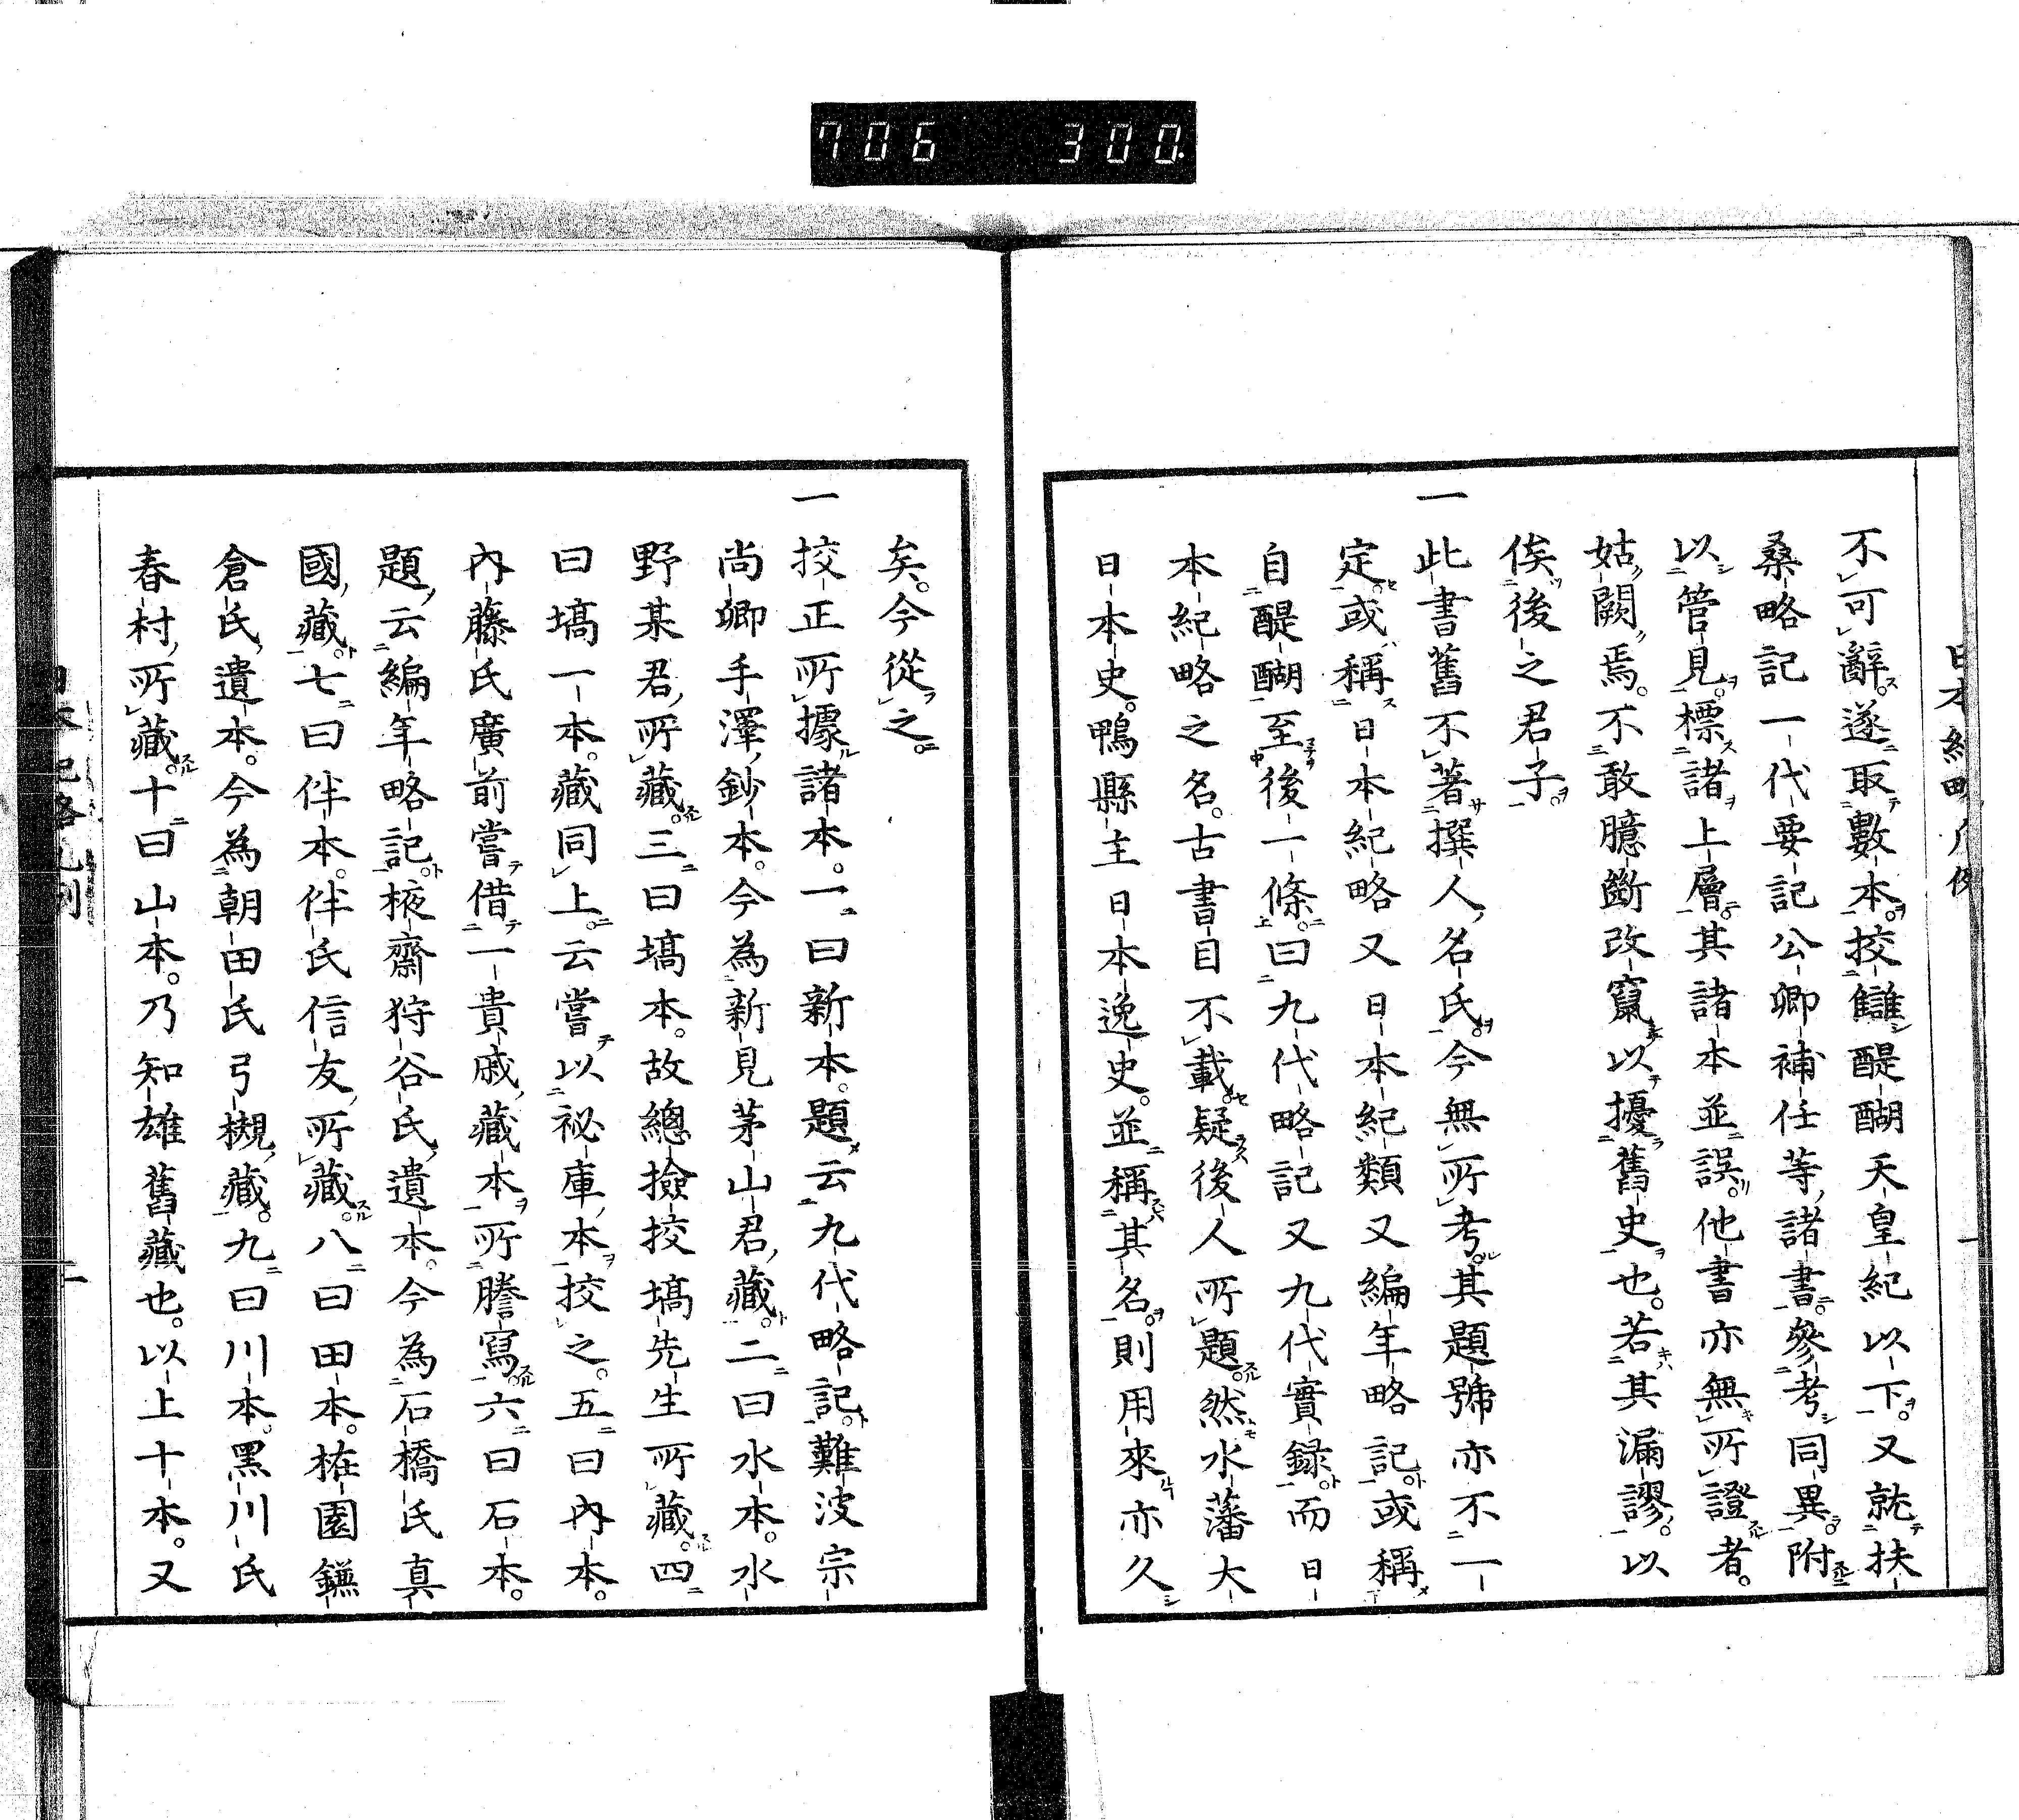 706 300.
不可辭。遂取數本。挍讎醍醐天皇紀以下。又就扶
桑略記一代要記公卿補任等諸書。參考同異。附
以管見。標諸上層。其諸本並誤。他書亦無所證者。
姑闕焉。不敢臆斷改竄以擾舊史也。若其漏謬。以
俟後之君子。
一此書舊不著撰人名氏。今無所考。其題號亦不一
定。或稱日本紀略又日本紀類又編年略記。或稱
自醍醐至後一條。曰九代略記又九代實録。而日
本紀略之名。古書目不載。疑後人所題。然水藩大
日本史。鴨縣主日本逸史。並稱其名。則用來亦久
矣。今從之。
一挍正所據諸本。一曰新本。題云九代略記。難波宗
尚卿手澤鈔本。今為新見茅山君藏。二曰水本。水
野某君所藏。三曰塙本。故總撿挍塙先生所藏。四
曰塙一本。藏同上。云嘗以祕庫本挍之。五曰內本。
內藤氏廣前嘗借一貴戚藏本所謄寫。六曰石本。
題云編年略記。掖齋狩谷氏遺本。今為石橋氏真
國藏。七曰伴本。伴氏信友所藏。八曰田本。梅園鎌
倉氏遺本。今為朝田氏弓槻藏。九曰川本。黑川氏
春村所藏。十曰山本。乃知雄舊藏也。以上十本。又